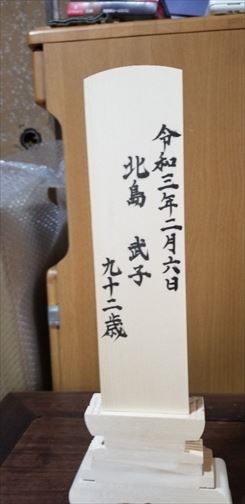 令和三年二月六日
北島 武子
九十二歳